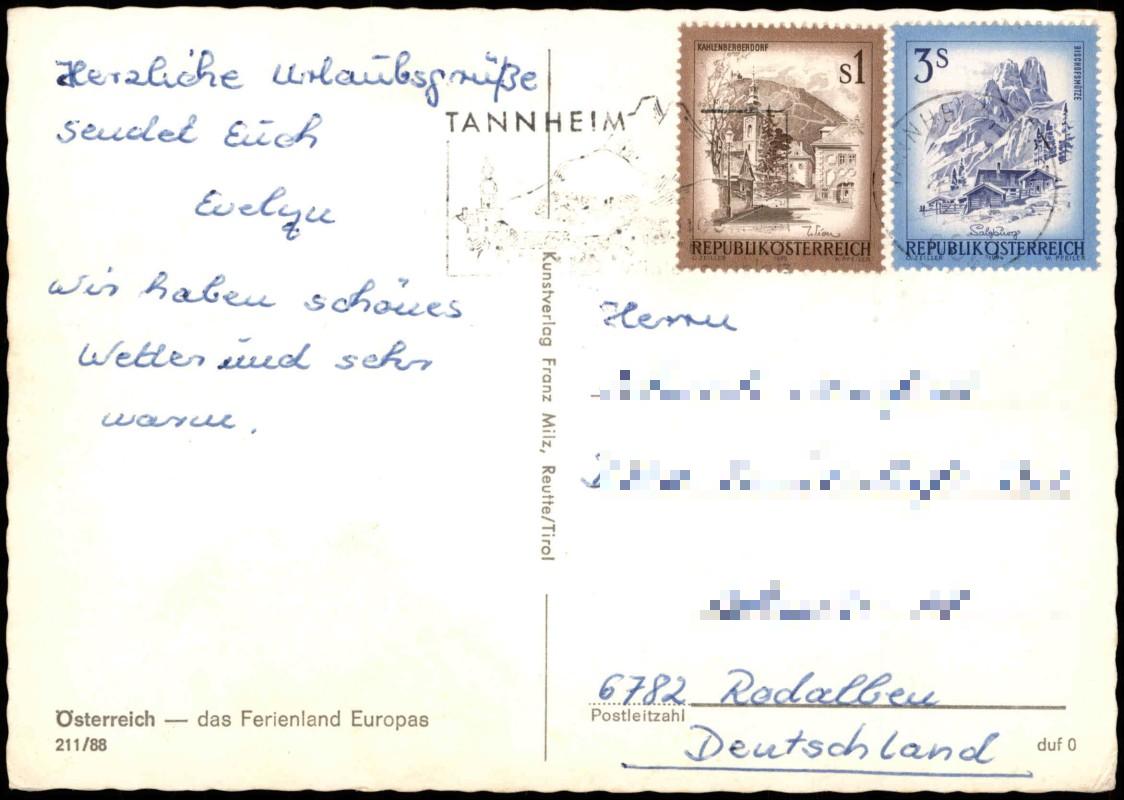 Herzliche Urlaubsgrüße
sendet Euch
Evelyn
Wir haben schönes
Wetter und sehr
warm.
Österreich — das Ferienland Europas
211/88
Kunstverlag Franz Milz, Reutte/Tirol
TANNHEIM
KAHLENBERGERDORF
s1
Wien
REPUBLIK ÖSTERREICH
O. ZEILLER 1975 W. PFEILER
3s
BISCHOFSMÜTZE
Salzburg
REPUBLIK ÖSTERREICH
O. ZEILLER 1974 W. PFEILER
Herrn
6782 Rodalben
Postleitzahl
Deutschland
duf 0